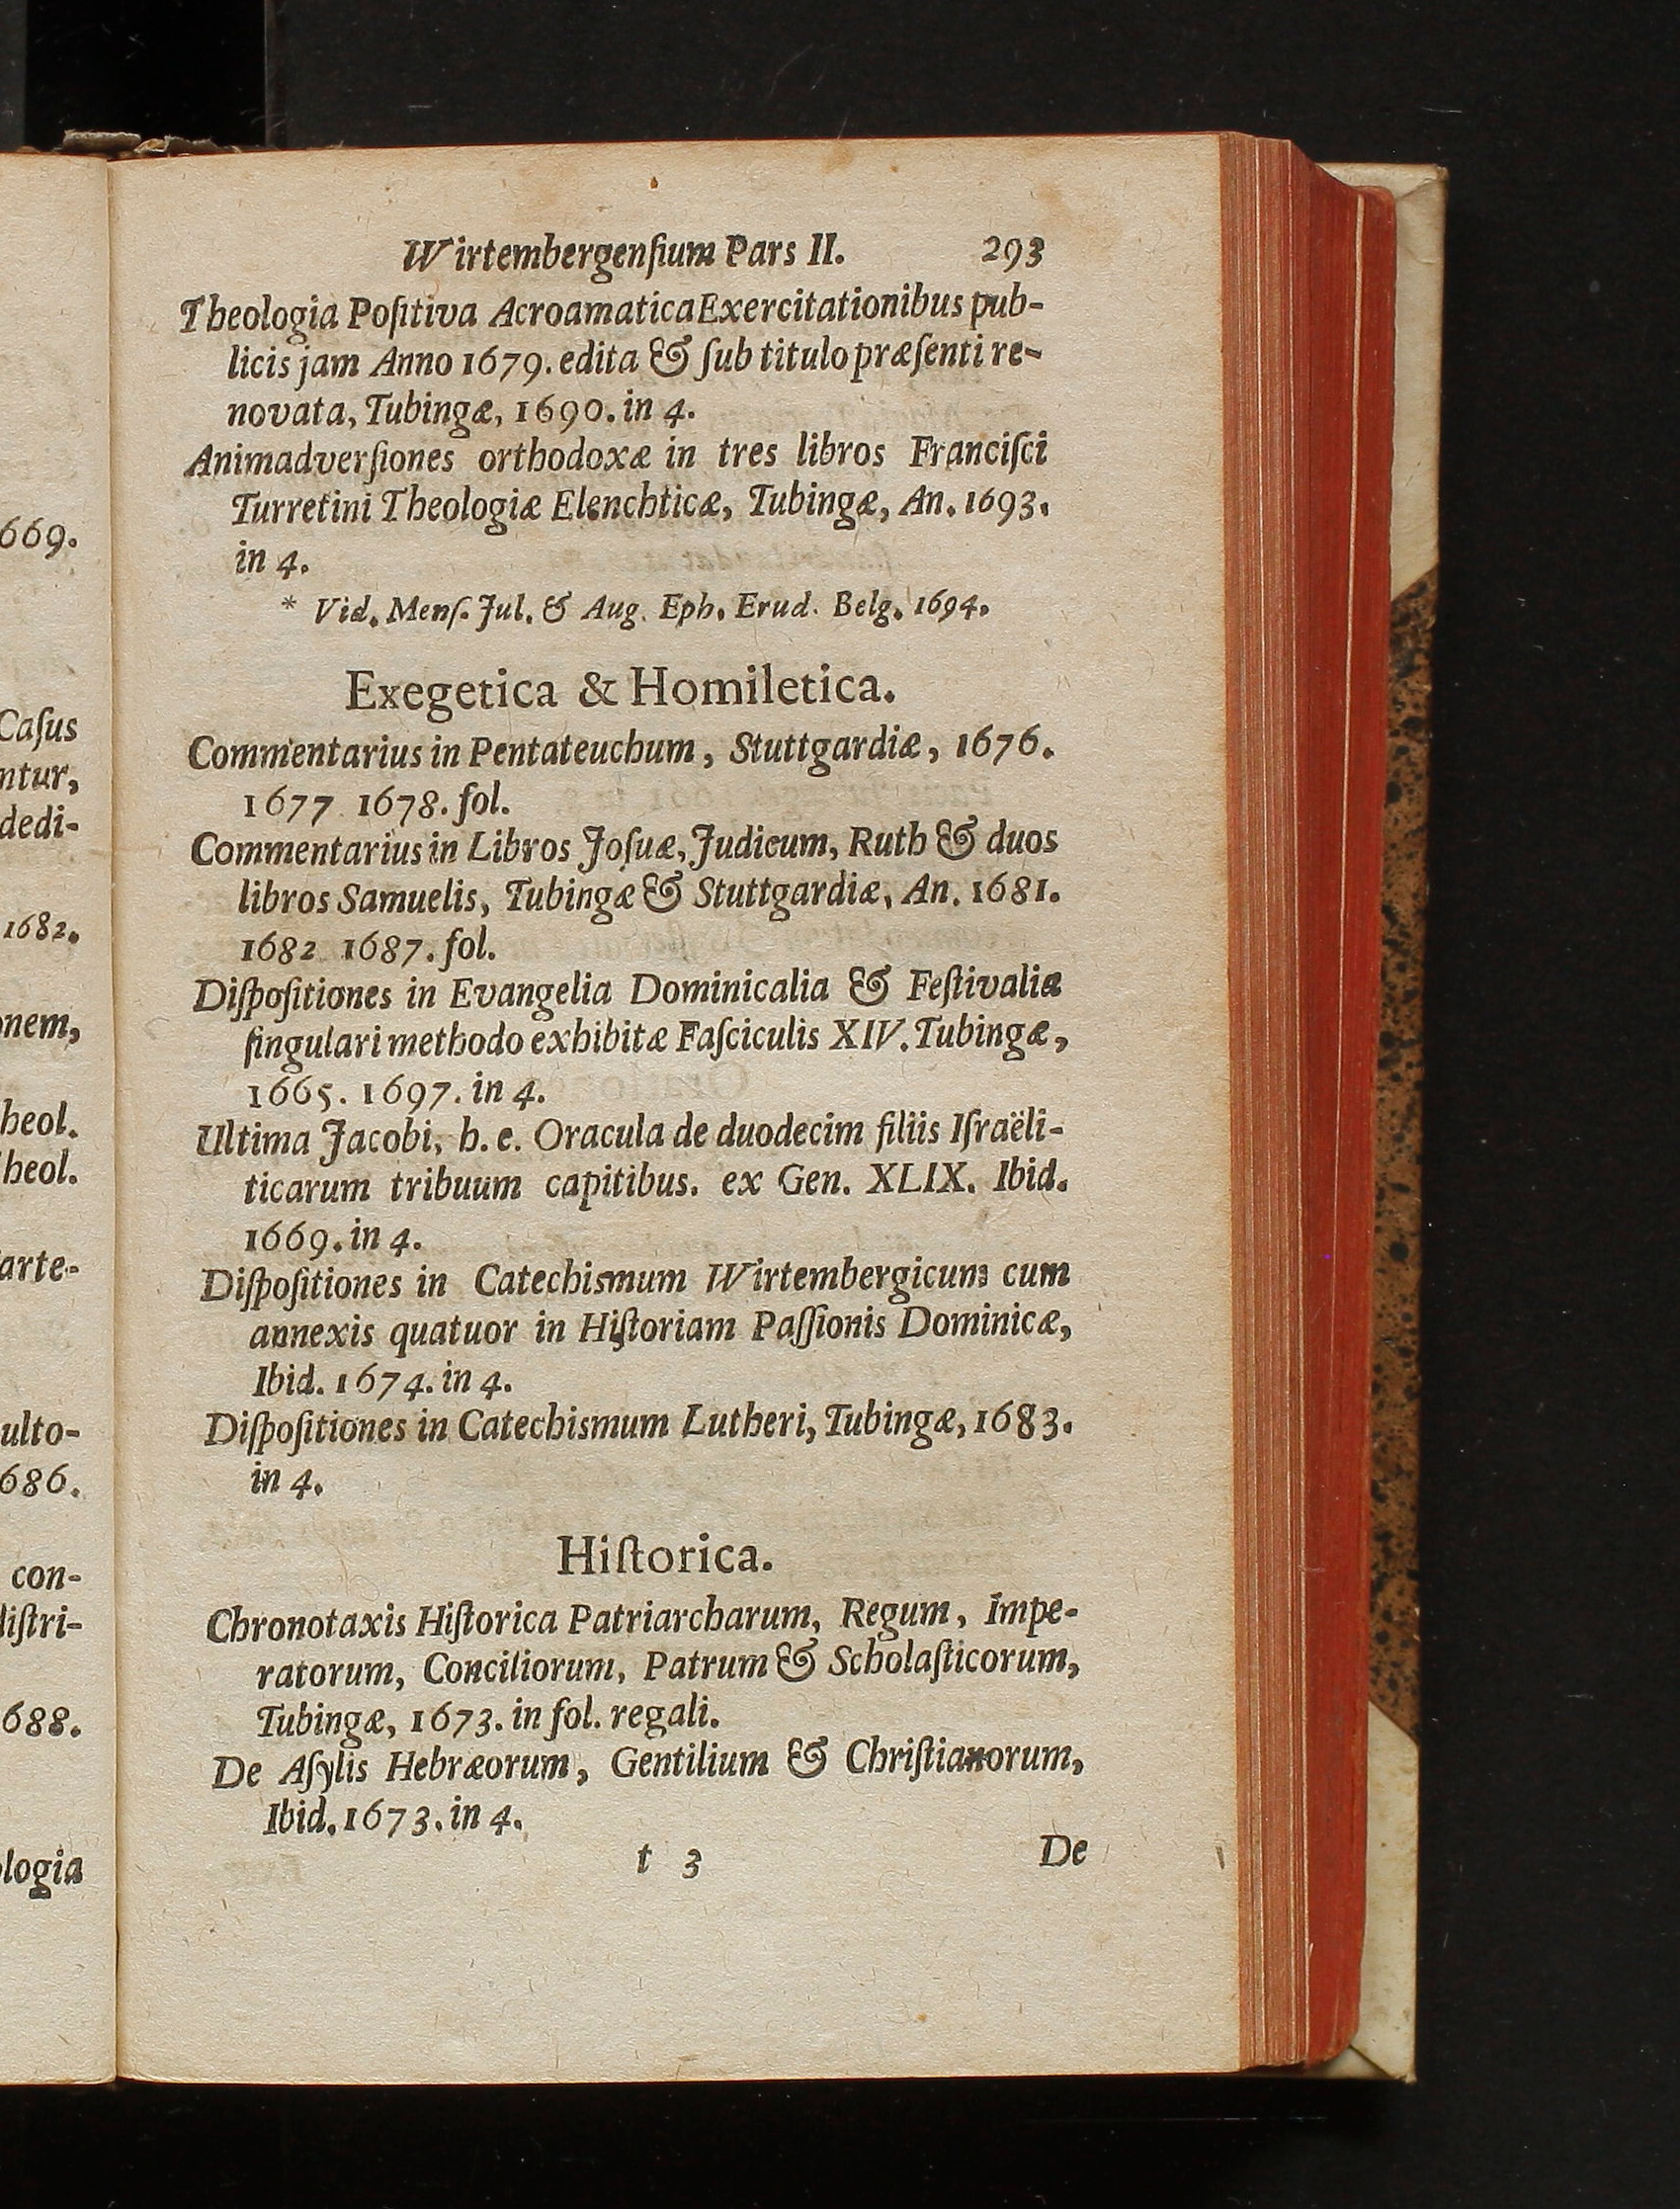 Wirtembergenſium Pars II. 293
Theologia Poſitiva Acroamatica Exercitationibus pub-
licis jam Anno 1679. edita & ſub titulo præſenti re-
novata, Tubingæ, 1690. in 4.
Animadverſiones orthodoxæ in tres libros Franciſci
Turretini Theologiæ Elenchticæ, Tubingæ, An. 1693.
in 4.
* Vid. Menſ. Jul. & Aug. Eph. Erud. Belg. 1694.
Exegetica & Homiletica.
Commentarius in Pentateuchum, Stuttgardiæ, 1676.
1677 1678. fol.
Commentarius in Libros Joſuæ, Judicum, Ruth & duos
libros Samuelis, Tubingæ & Stuttgardiæ, An. 1681.
1682 1687. fol.
Diſpoſitiones in Evangelia Dominicalia & Feſtivalia
ſingulari methodo exhibitæ Faſciculis XIV. Tubingæ,
1665. 1697. in 4.
Ultima Jacobi, h. e. Oracula de duodecim filiis Iſraëli-
ticarum tribuum capitibus. ex Gen. XLIX. Ibid.
1669. in 4.
Diſpoſitiones in Catechismum Wirtembergicum cum
annexis quatuor in Hiſtoriam Paſſionis Dominicæ,
Ibid. 1674. in 4.
Diſpoſitiones in Catechismum Lutheri, Tubingæ, 1683.
in 4.
Hiſtorica.
Chronotaxis Hiſtorica Patriarcharum, Regum, Impe-
ratorum, Conciliorum, Patrum & Scholaſticorum,
Tubingæ, 1673. in fol. regali.
De Aſylis Hebræorum, Gentilium & Chriſtianorum,
Ibid. 1673. in 4.
t 3 De
669.
Caſus
ntur,
dedi-
1682.
onem,
heol.
heol.
arte-
ulto-
686.
con-
liſtri-
688.
ologia